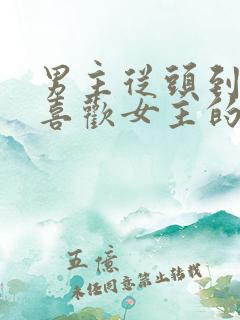 男主從頭到
喜歡女主的
五億
未经同意禁止转载